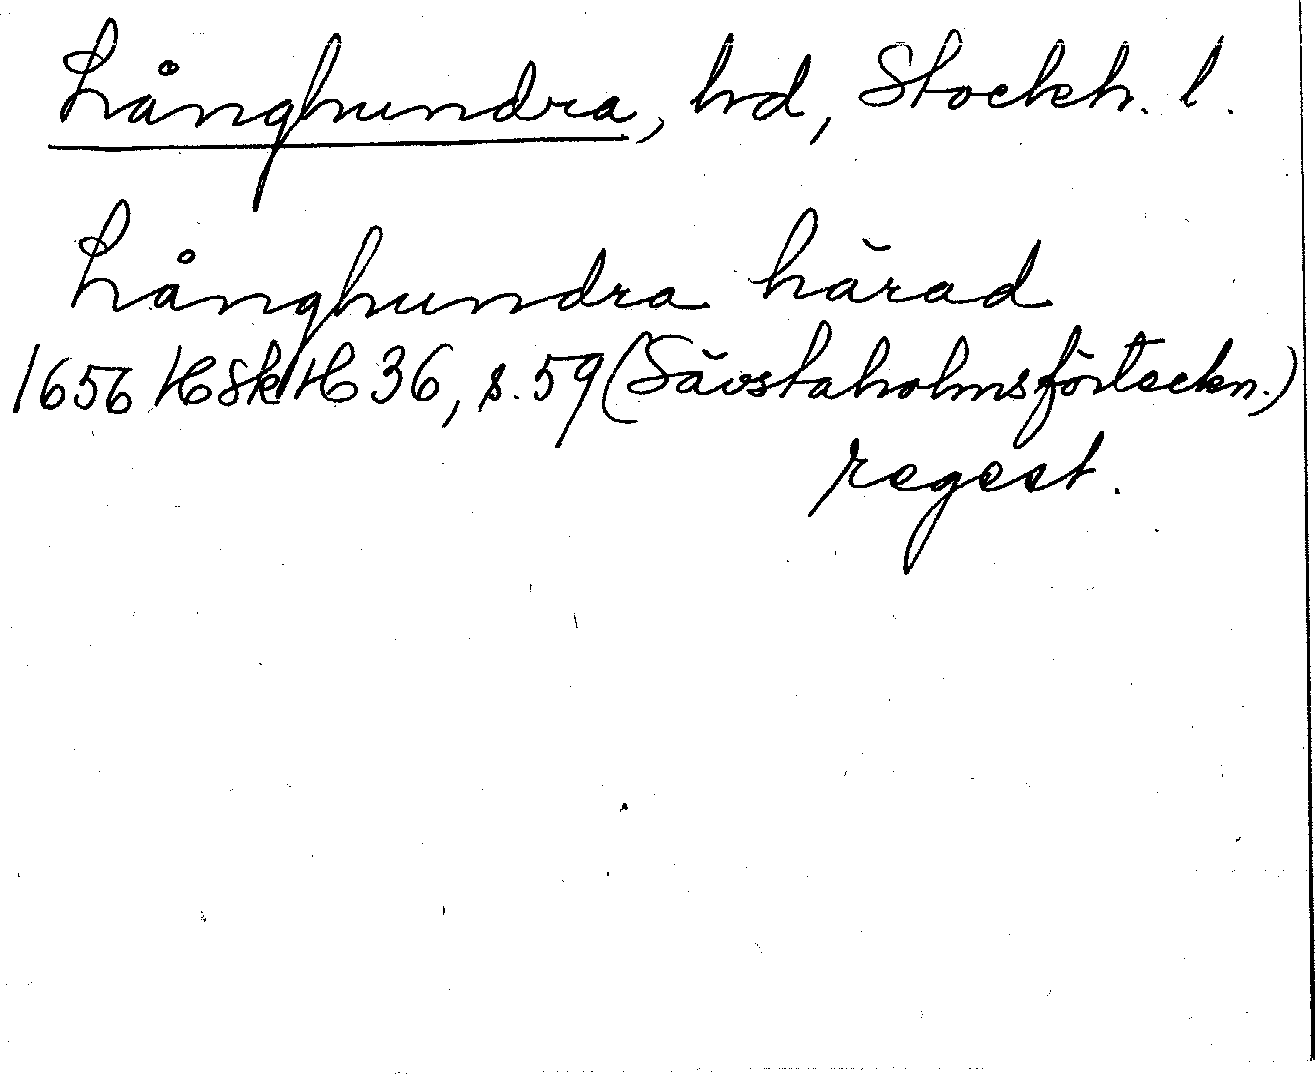 Långhundra, hd, Stockh. l.
Långhundra härad
1656 HSkH 36, s. 59 (Sävstaholmsförteckn.)
regest.